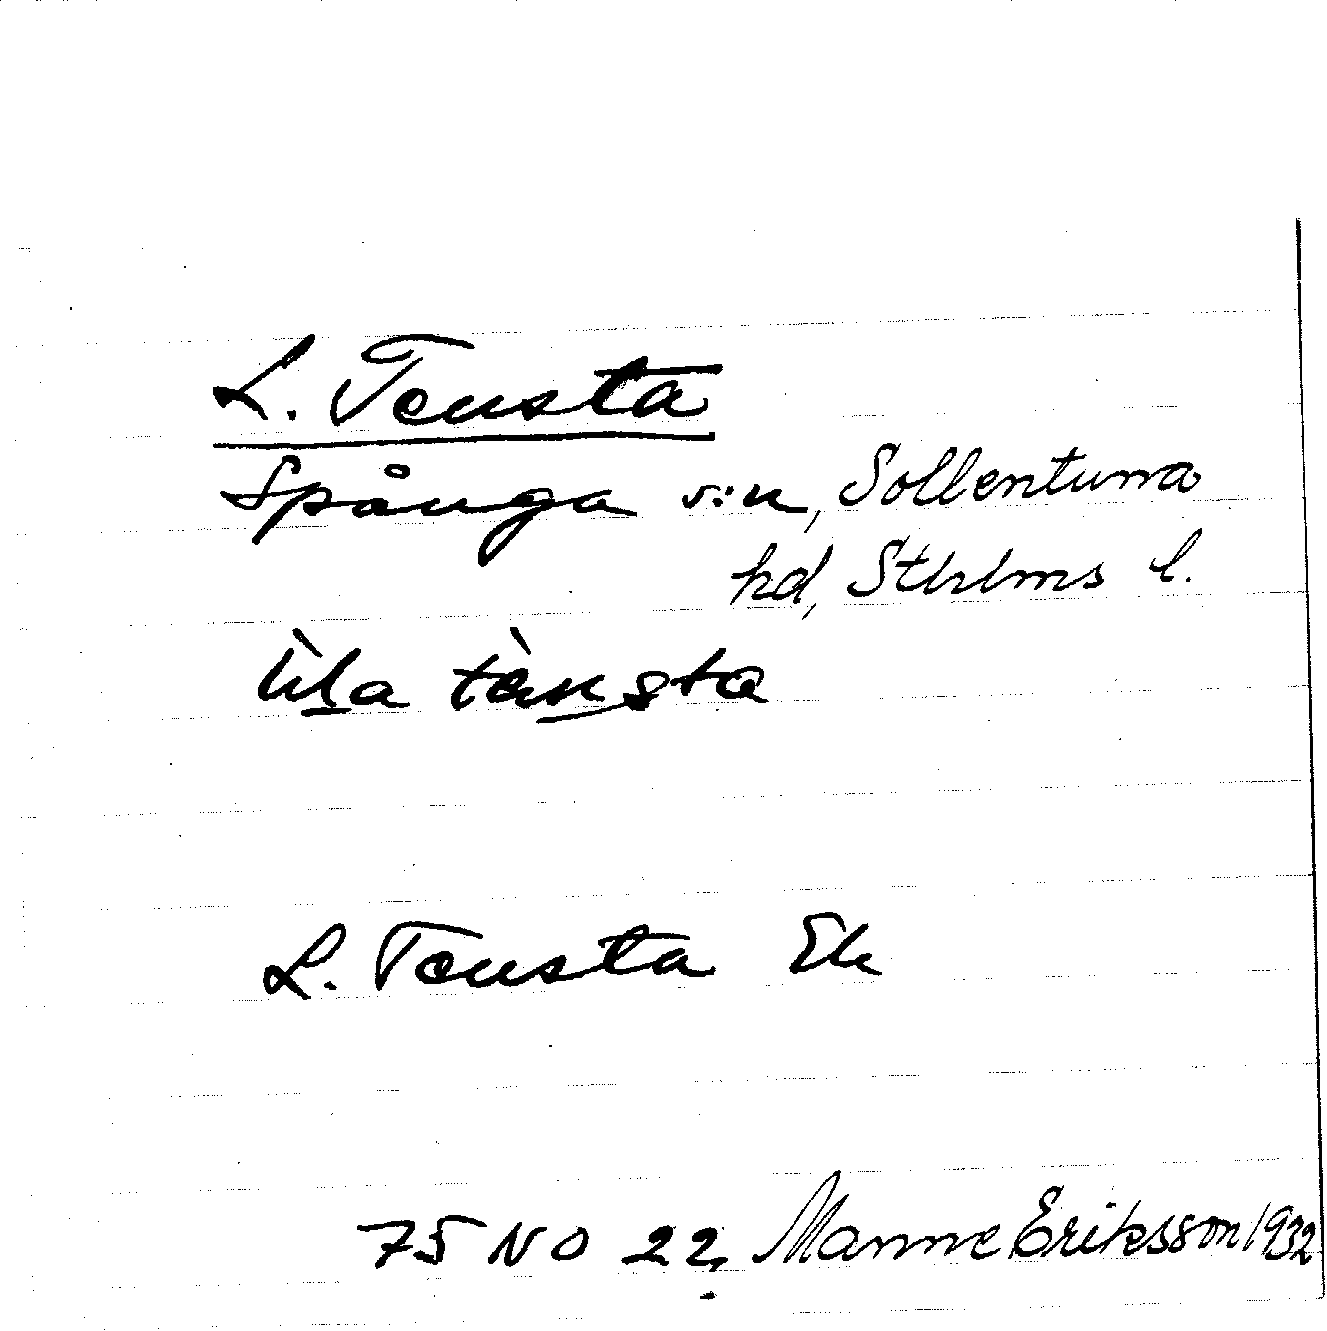 L. Tensta
Spånga s:n, Sollentuna
hd, Sthlms l.
lìla tènsta
L. Tensta Ek
75 NO 22, Manne Eriksson 1932